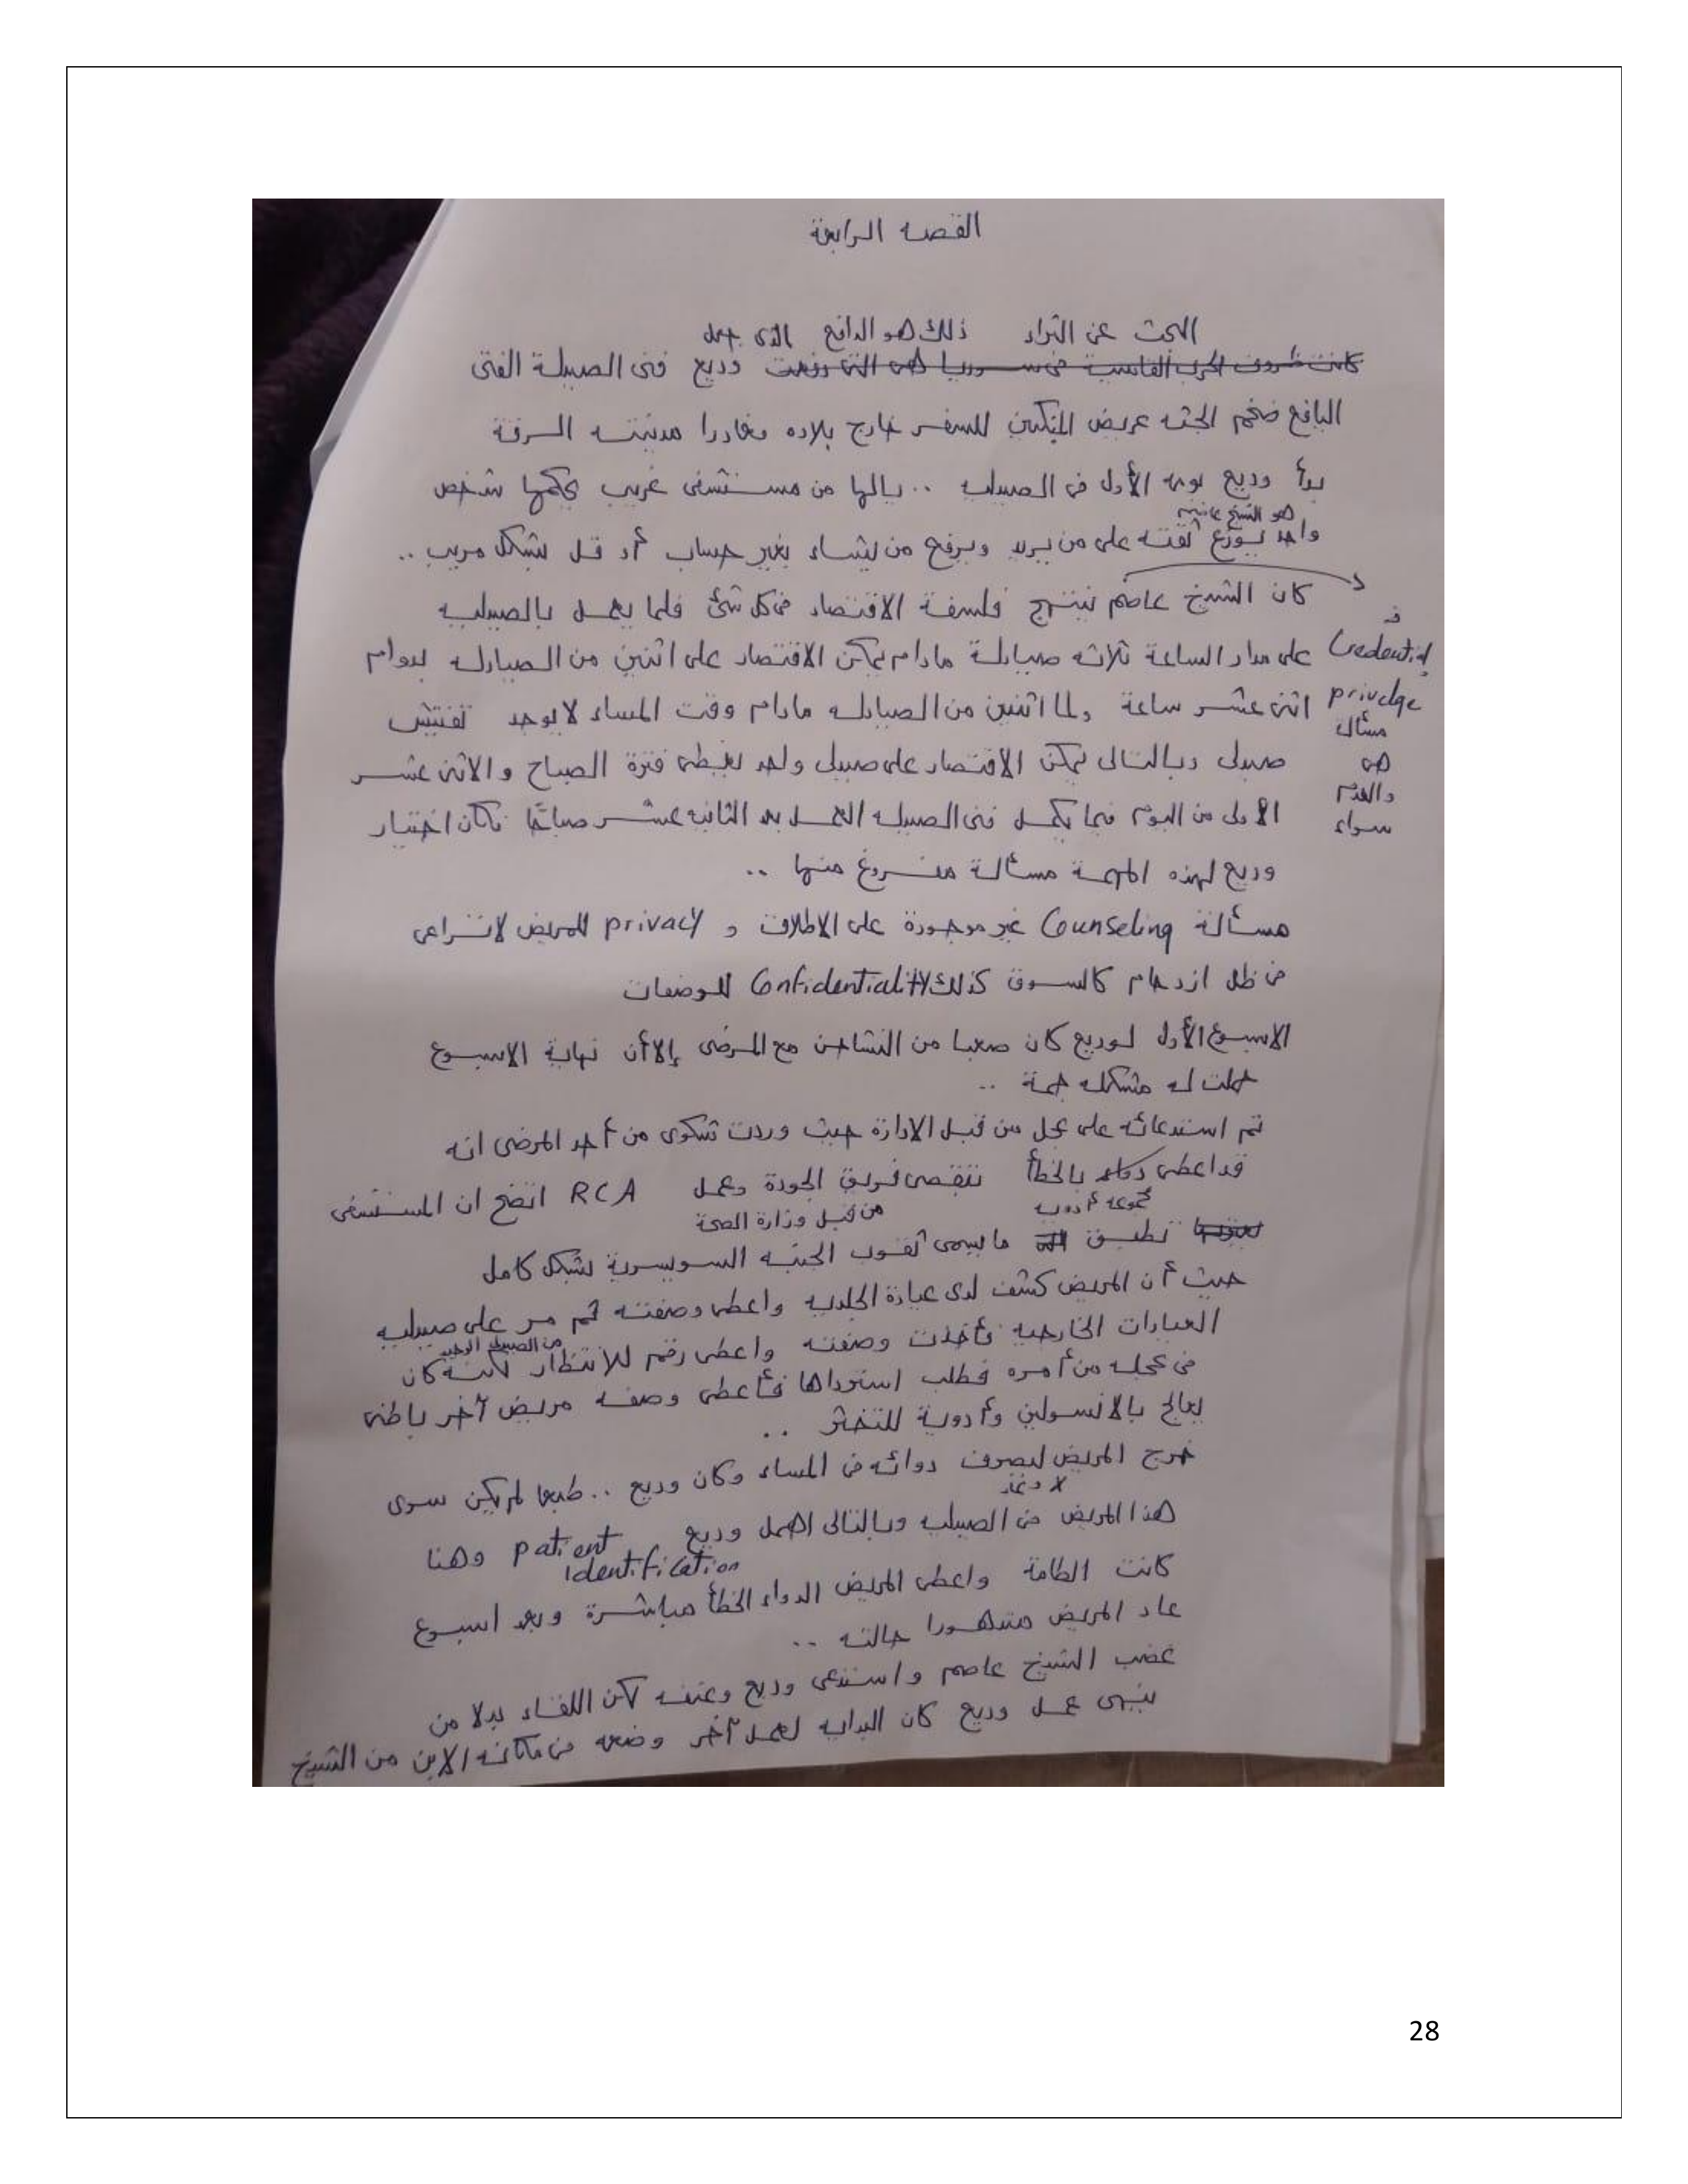 القصه الرابعة
البحث عن الثراء ذلك هو الدافع الذى جعل
كانت ظروف الحرب القاسية فى سوريا هى التى دفعت وديع فنى الصيدلة الفتى
اليافع ضخم الجثه عريض المنكبين للسفر خارج بلاده مغادرا مدينته الرقة
بدأ وديع يومه الأول فى الصيدليه .. يالها من مستشفى غريب يحكمها شخص
هو الشيخ عاصم
واحد يوزع ثقته على من يريد ويرفع من يشاء بغير حساب أو قل بشكل مريب ..
كان الشيخ عاصم ينتهج فلسفة الاقتصاد فى كل شئ فلما يعمل بالصيدليه
على مدار الساعة ثلاثه صيادلة مادام يمكن الاقتصار على اثنين من الصيادله بدوام
اثنى عشر ساعة ولما اثنين من الصيادله مادام وقت المساء لا يوجد تفتيش
صيدلى وبالتالى يمكن الاقتصار على صيدلى واحد يغطى فترة الصباح والاثنى عشر
الاولى من اليوم فيما يكمل فنى الصيدله العمل بعد الثانيه عشر صباحًا فكان اختيار
وديع لهذه المهمة مسألة مفروغ منها ..
فـ
Credential
privelge
مسألة
هى
والعدم
سواء
مسألة Counseling غير موجودة على الاطلاق و privacy للمريض لا تراعى
فى ظل ازدحام كالسوق كذلك Confidentiality للوصفات
الاسبوع الأول لوديع كان صعبا من التشاحن مع المرضى إلا أن نهاية الاسبوع
حملت له مشكله جمة ..
تم استدعائه على عجل من قبل الادارة حيث وردت شكوى من أحد المرضى انه
قد اعطى دواء بالخطأ فتقصى فريق الجودة وعمل RCA اتضح ان المستشفى
مجموعة أدويه من قبل وزارة الصحة
تطبق ما يسمى ثقوب الجبنه السويسرية بشكل كامل
حيث أن المريض كشف لدى عيادة الجلديه واعطى وصفته ثم مر على صيدليه
العيادات الخارجيه فأخذت وصفته واعطى رقم للانتظار لكنه كان
من الصيدلى الوحيد
فى عجله من أمره فطلب استردادها فأعطى وصفه مريض آخر باطنى
يعالج بالانسولين وأدوية للتخثر ..
خرج المريض ليصرف دوائه فى المساء وكان وديع .. طبعا لم يكن سوى
هذا المريض فى الصيدليه وبالتالى اهمل وديع patient identification وهنا
كانت الطامة واعطى المريض الدواء الخطأ مباشرة وبعد اسبوع
عاد المريض متدهورا حالته ..
غضب الشيخ عاصم واستدعى وديع وعنفه لكن اللقاء بدلا من
ينهى عمل وديع كان البدايه لعمل آخر وضعه فى مكانه الابن من الشيخ
28